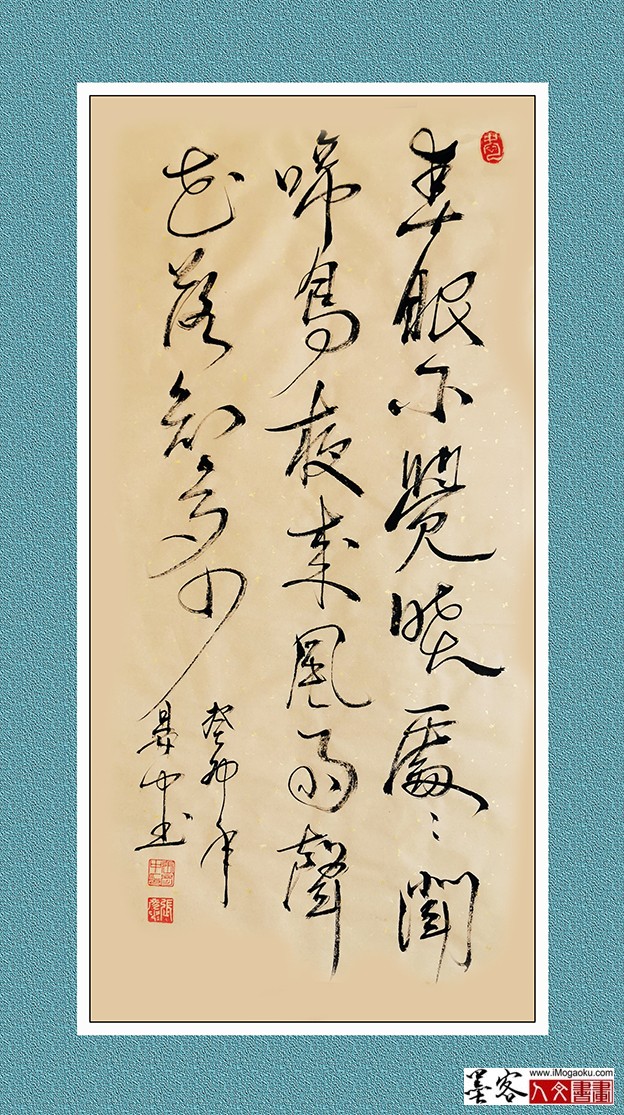 春眠不覺曉處〻聞
啼鳥夜来風雨聲
花落知多少
癸卯年
中書
www.iMogaoku.com
墨客
人文書畫